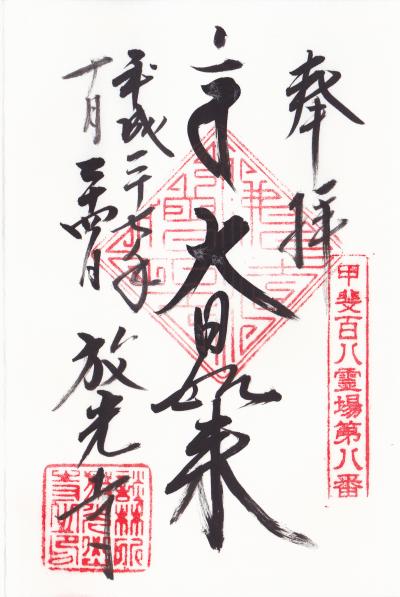 奉拝
甲斐百八霊場第八番
大日如来
平成二十七年
十月二十四日
放光寺